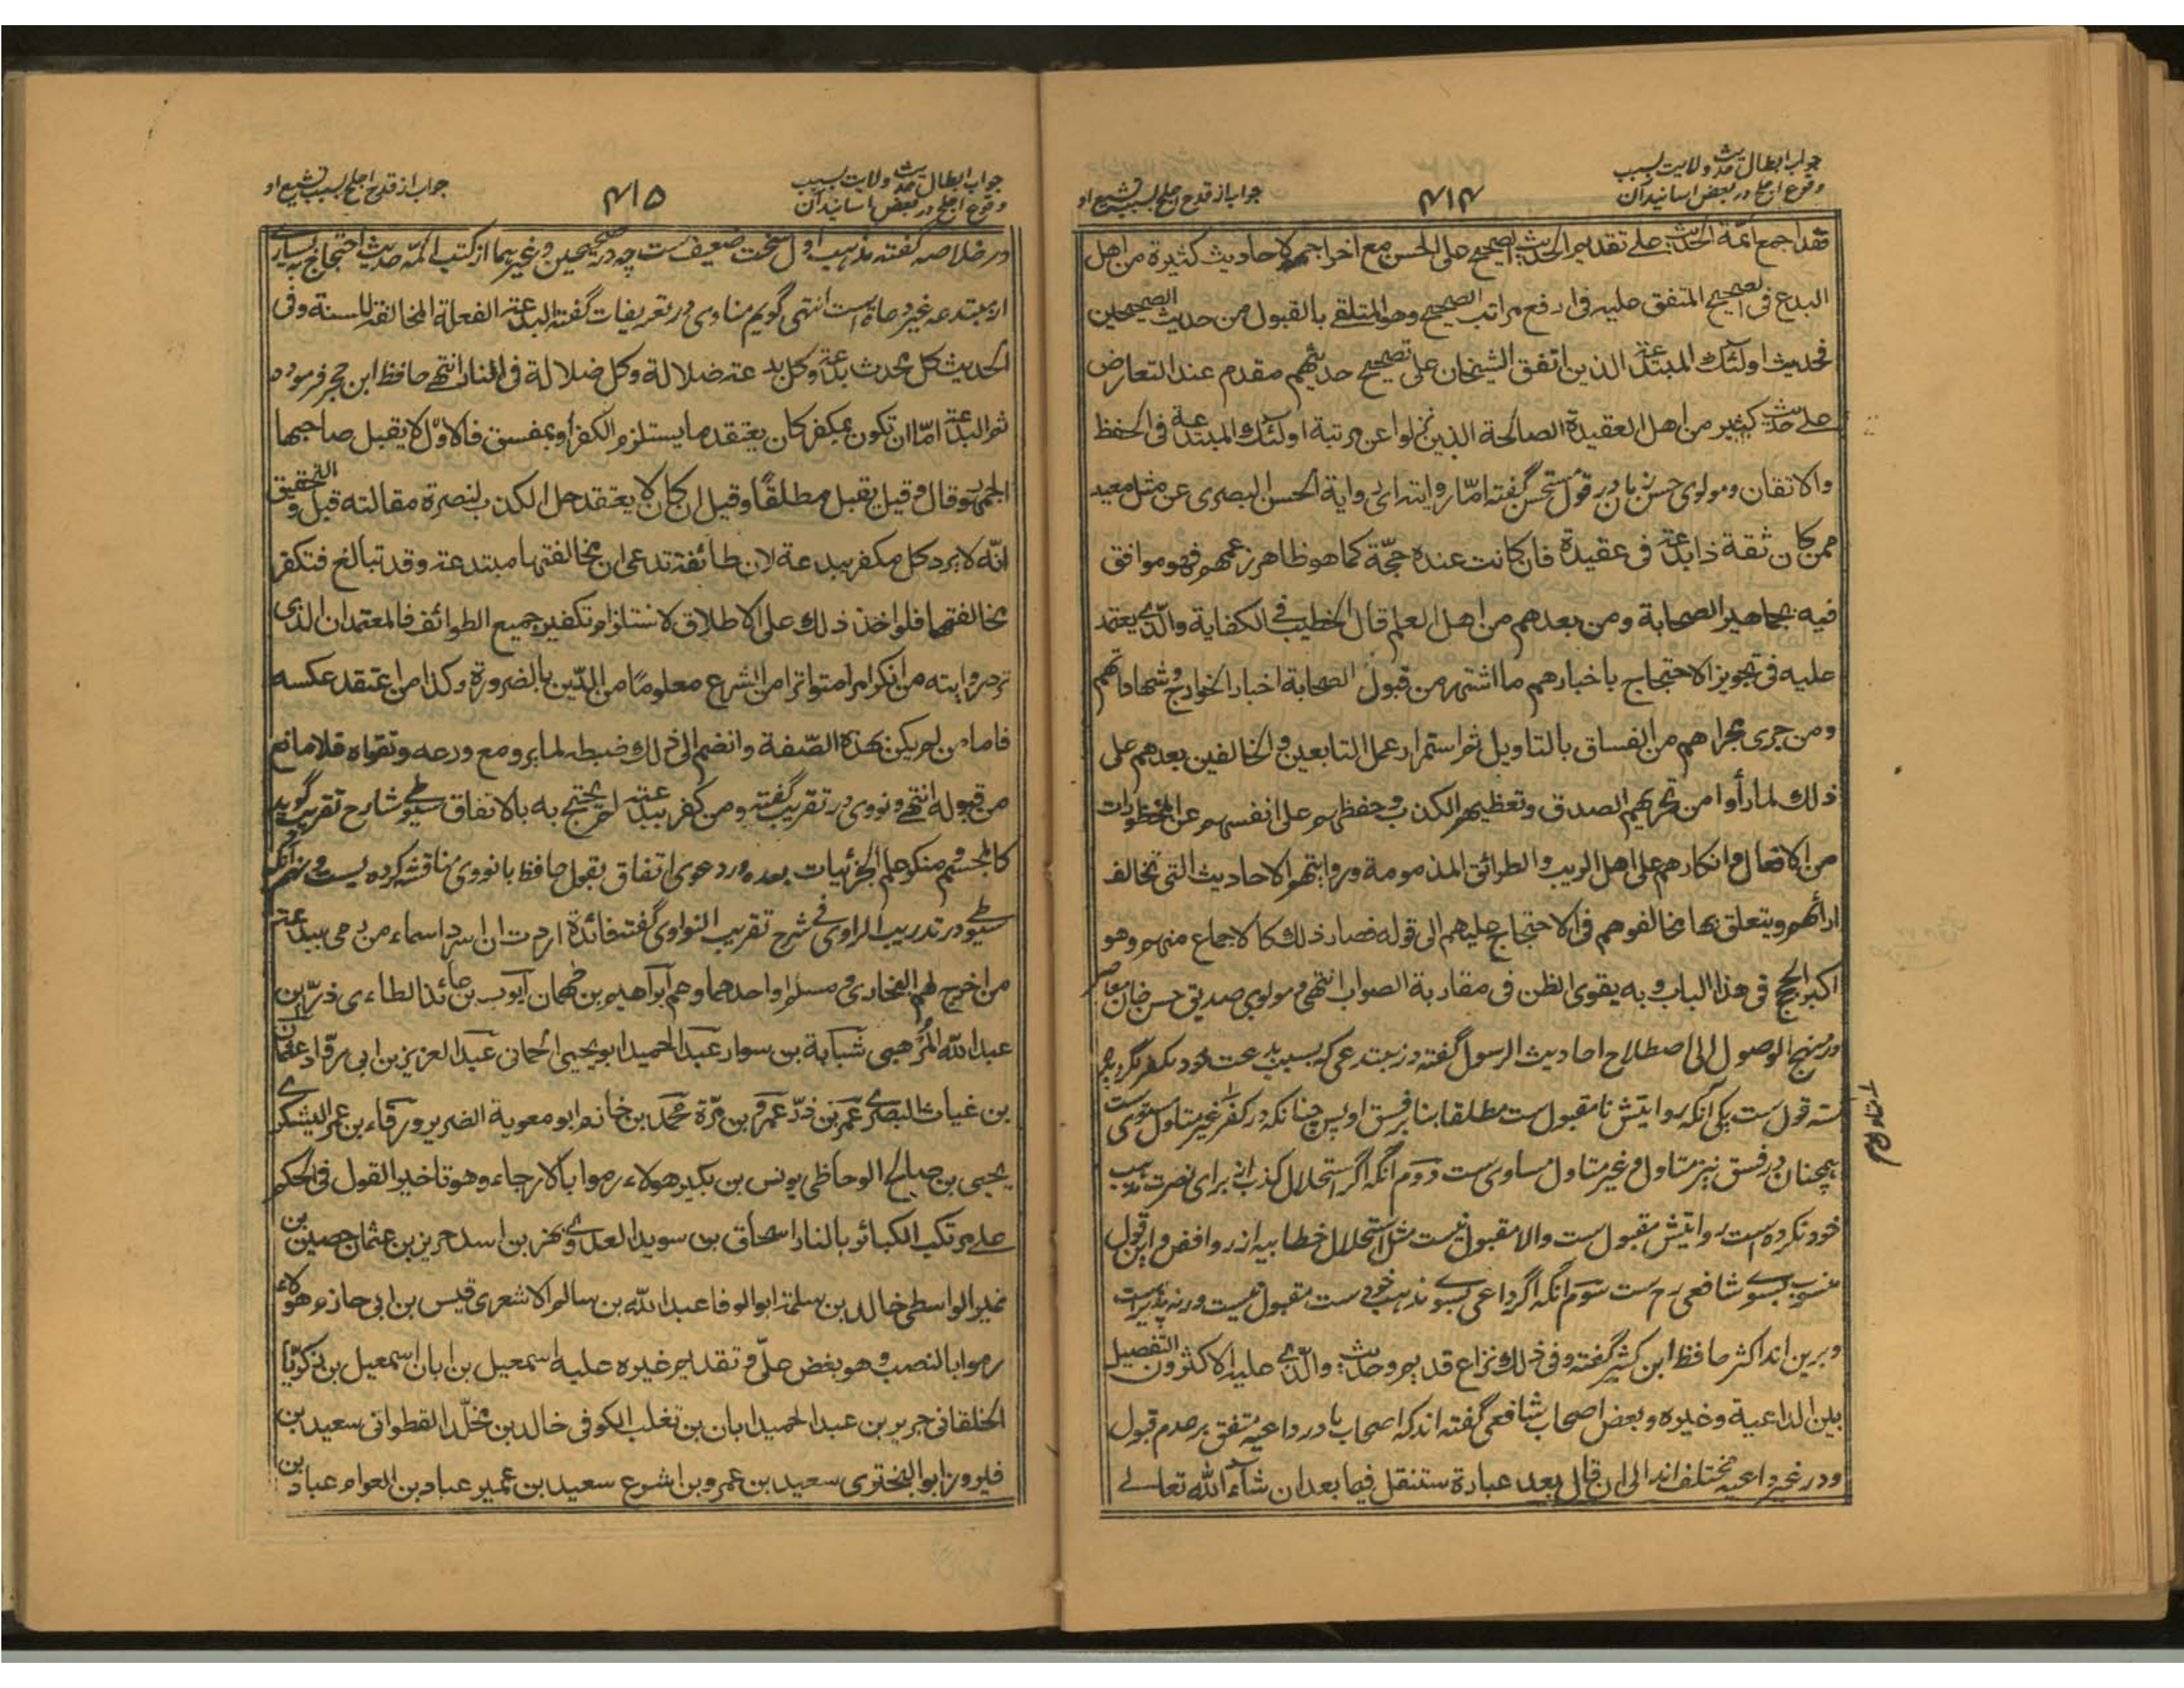 جواب ابطال حدیث ولایت بسبب
وقوع اجلح در بعض اسانید آن
۴۱۴
جواب از قدح اجلح بسبب تشیع او
فقد اجمع ائمة الحدیث علے تقدیم الحدیث الصحیح علی الحسن مع اخراجهم لاحادیث کثیرة من اهل
البدع فی الصحیح المتفق علیه فی ارفع مراتب الصحیح وهو المتلقے بالقبول من حدیث الصحیحین
فحدیث اولئک المبتدعة الذین اتفق الشیخان علی تصحیح حدیثهم مقدم عند التعارض
علے حدیث کثیر من اهل العقیدة الصالحة الذین نزلوا عن مرتبة اولئک المبتدعة فی الحفظ
والاتقان ومولوی حسن زمان در قول مستحسن گفته امّا روایته ای روایة الحسن البصری عن مثل معبد
ممن کان ثقة ذا بدعة فی عقیدة فان کانت عنده حجّة کما هو ظاهر زعمهم فهو موافق
فیه بجماهیر الصحابة ومن بعدهم من اهل العلم قال الخطیب فے الکفایة والّذے یعتمد
علیه فی تجویز الاحتجاج باخبارهم ما اشتهر من قبول الصحابة اخبار الخوارج وشهاداتهم
ومن جری مجراهم من الفساق بالتاویل ثم استمرار عمل التابعین والخالفین بعدهم علی
ذلک لما رأوا من تحریهم الصدق وتعظیمهم الکذب وحفظهم علی انفسهم عن المحظورات
من الافعال وانکارهم علی اهل الریب والطرائق المذمومة وروایتهم الاحادیث التی تخالف
ارائهم ویتعلق بها مخالفوهم فی الاحتجاج علیهم الی قوله فصار ذلک کالاجماع منهم وهو
اکبر الحجج فی هذا الباب وبه یقوی الظن فی مقاربة الصواب انتهی ومولوی صدیق حسن خان معاصر
در منهج الوصول الی اصطلاح احادیث الرسول گفته در مبتدعی که بسبب بدعت خود مکفر نگردیده
سه قول ست یکی آنکه روایتش نامقبول ست مطلقا بنابر فسق او پس چنانکه در کفر غیر متاول مستوی ست
همچنان در فسق نیز متاول وغیر متاول مساوی ست دوم آنکه اگر استحلال کذب از برای نصرت مذهب
خود نکرده است روایتش مقبول ست والا مقبول نیست مثل استحلال خطابیه از روافض و این قول
منسوب بسوے شافعی رح ست سوم آنکه اگر داعی بسوے مذهب خود ست مقبول نیست ورنه پذیراست
وبرین اند اکثر حافظ ابن کثیر گفته وفی ذلک نزاع قدیم وحدیث والّذے علیه الاکثرون التفصیل
بین الداعیة وغیره وبعض اصحاب شافعی گفته اند که اصحاب ما در داعیه متفق بر عدم قبول
ودر غیر داعیه مختلف اند الی ان قال بعد عبارة ستنقل فیما بعد ان شاء الله تعالے
جواب ابطال حدیث ولایت بسبب
وقوع اجلح در بعض اسانید آن
۴۱۵
جواب از قدح اجلح بسبب تشیع او
در خلاصه گفته مذهب اول سخت ضعیف ست چه در صحیحین وغیرهما از کتب ائمّه حدیث احتجاج به بسیارے
از مبتدعه غیر دعاة است انتهی گویم مناوی در تعریفات گفته البدعة الفعلة المخالفة للسنة وفی
الحدیث کل محدث بدعة وکل بدعة ضلالة وکل ضلالة فی النار انتهے حافظ ابن حجر فرموده
ثم البدعة امّا ان تکون بمکفر کان یعتقد ما یستلزم الکفر او بمفسق فالاوّل لا یقبل صاحبها
الجمهور وقال وقیل یقبل مطلقًا وقیل ان کان لا یعتقد حل الکذب لنصرة مقالته قبل والتحقیق
انّه لا یرد کل مکفر ببدعة لان طائفة تدعی ان مخالفتها مبتدعة وقد تبالغ فتکفر
مخالفتها فلو اخذ ذلک علی الاطلاق لاستلزم تکفیر جمیع الطوائف فالمعتمد ان الذی
ترد روایته من انکر امرا متواترا من الشرع معلومًا من الدّین بالضرورة وکذا من اعتقد عکسه
فاما من لم یکن بهذه الصّفة وانضم الی ذلک ضبطه لما یرویه مع ورعه وتقواه فلا مانع
من قبوله انتهے ونووی در تقریب گفته ومن کفر ببدعة لم یحتج به بالاتفاق سیوطے شارح تقریب گوید
کالمجسّم ومنکر علم الجزئیات بعده در دعوی اتفاق بقول حافظ با نووی مناقشه کرده
سیوطے در تدریب الراوی فے شرح تقریب النواوی گفته فائدة اردت ان اسرد اسماء من رمی ببدعة
من اخرج لهم البخاری ومسلم او احدهما وهم ابراهیم بن طهمان ایوب بن عائذ الطاءی ذرّ بن
عبد الله المُرهبی شبابة بن سوار عبد الحمید ابو یحیی الحمانی عبد العزیز بن ابی رقّاد عثمان
بن غیاث البصرے عمر بن ذرّ عمرو بن مرّة محمد بن خازم ابو معویة الضریر ورقاء بن عمر الیشکرے
یحیی بن صالح الوحاظی یونس بن بکیر هولاء رموا بالارجاء وهو تاخیر القول فی الحکم
علے مرتکب الکبائر بالنار اسحاق بن سوید العدوے بهز بن اسد حریز بن عثمان حصین بن
نمیر الواسطی خالد بن سلمة ابو الوفا عبد الله بن سالم الاشعری قیس بن ابی حازم هولاء
رموا بالنصب وهو بغض علیّ وتقدیم غیره علیه اسمعیل بن ابان اسمعیل بن زکریّا
الخلقانی جریر بن عبد الحمید ابان بن تغلب الکوفی خالد بن مخلّد القطوانی سعید بن
فیروز ابو البختری سعید بن عمرو بن اشوع سعید بن عمیر عباد بن العوام عباد بن